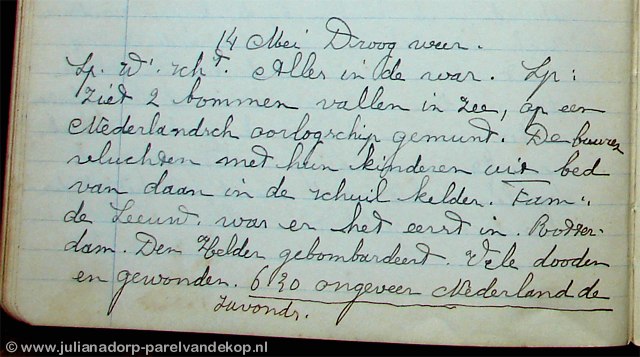 14 Mei Droog weer.
Sp. W. scht. Alles in de war. Sp:
Ziet 2 bommen vallen in zee, op een
Nederlandsch oorlogschip gemunt. De buuren
vluchten met hun kinderen uit bed
van daan in de schuil kelder. Fam:
de Leeuw. war er het eerst in. Rotter-
dam. Den Helder gebombardeert. Vele dooden
en gewonden. 6.30 ongeveer Nederland de
zavonds.
© www.julianadorp-parelvandekop.nl